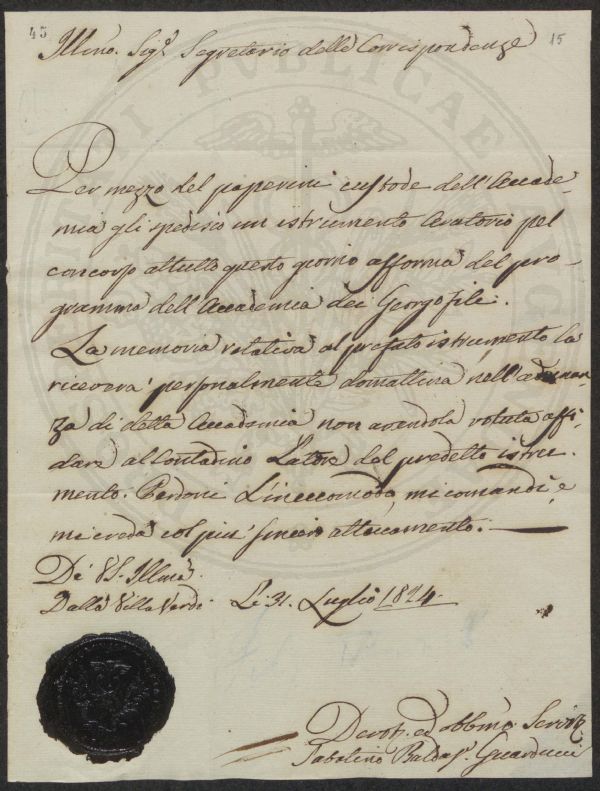 45
15
Illmo. Sigr. Segretario delle Corrispondenze
Per mezzo del paperini custode dell'Accade-
mia gli spedisco un istrumento Aratorio pel
concorso a tutto questo giorno a fforma del pro-
gramma dell'Accademia dei Georgofili.
La memoria relativa al prefato istrumento la
riceverà personalmente domattina nell'adunan-
za di detta Accademia non avendola voluta affi-
dare al Contadino Latore del predetto istru-
mento. Perdoni L'incommodo, mi comandi, e
mi creda col più sincero attaccamento.
De VS. Illma.
Dalla Villa Verdi. Li. 31. Luglio 1824.
Devot. ed obbmo. Servit.
Baldasr. Guarducci
PVBLICAE